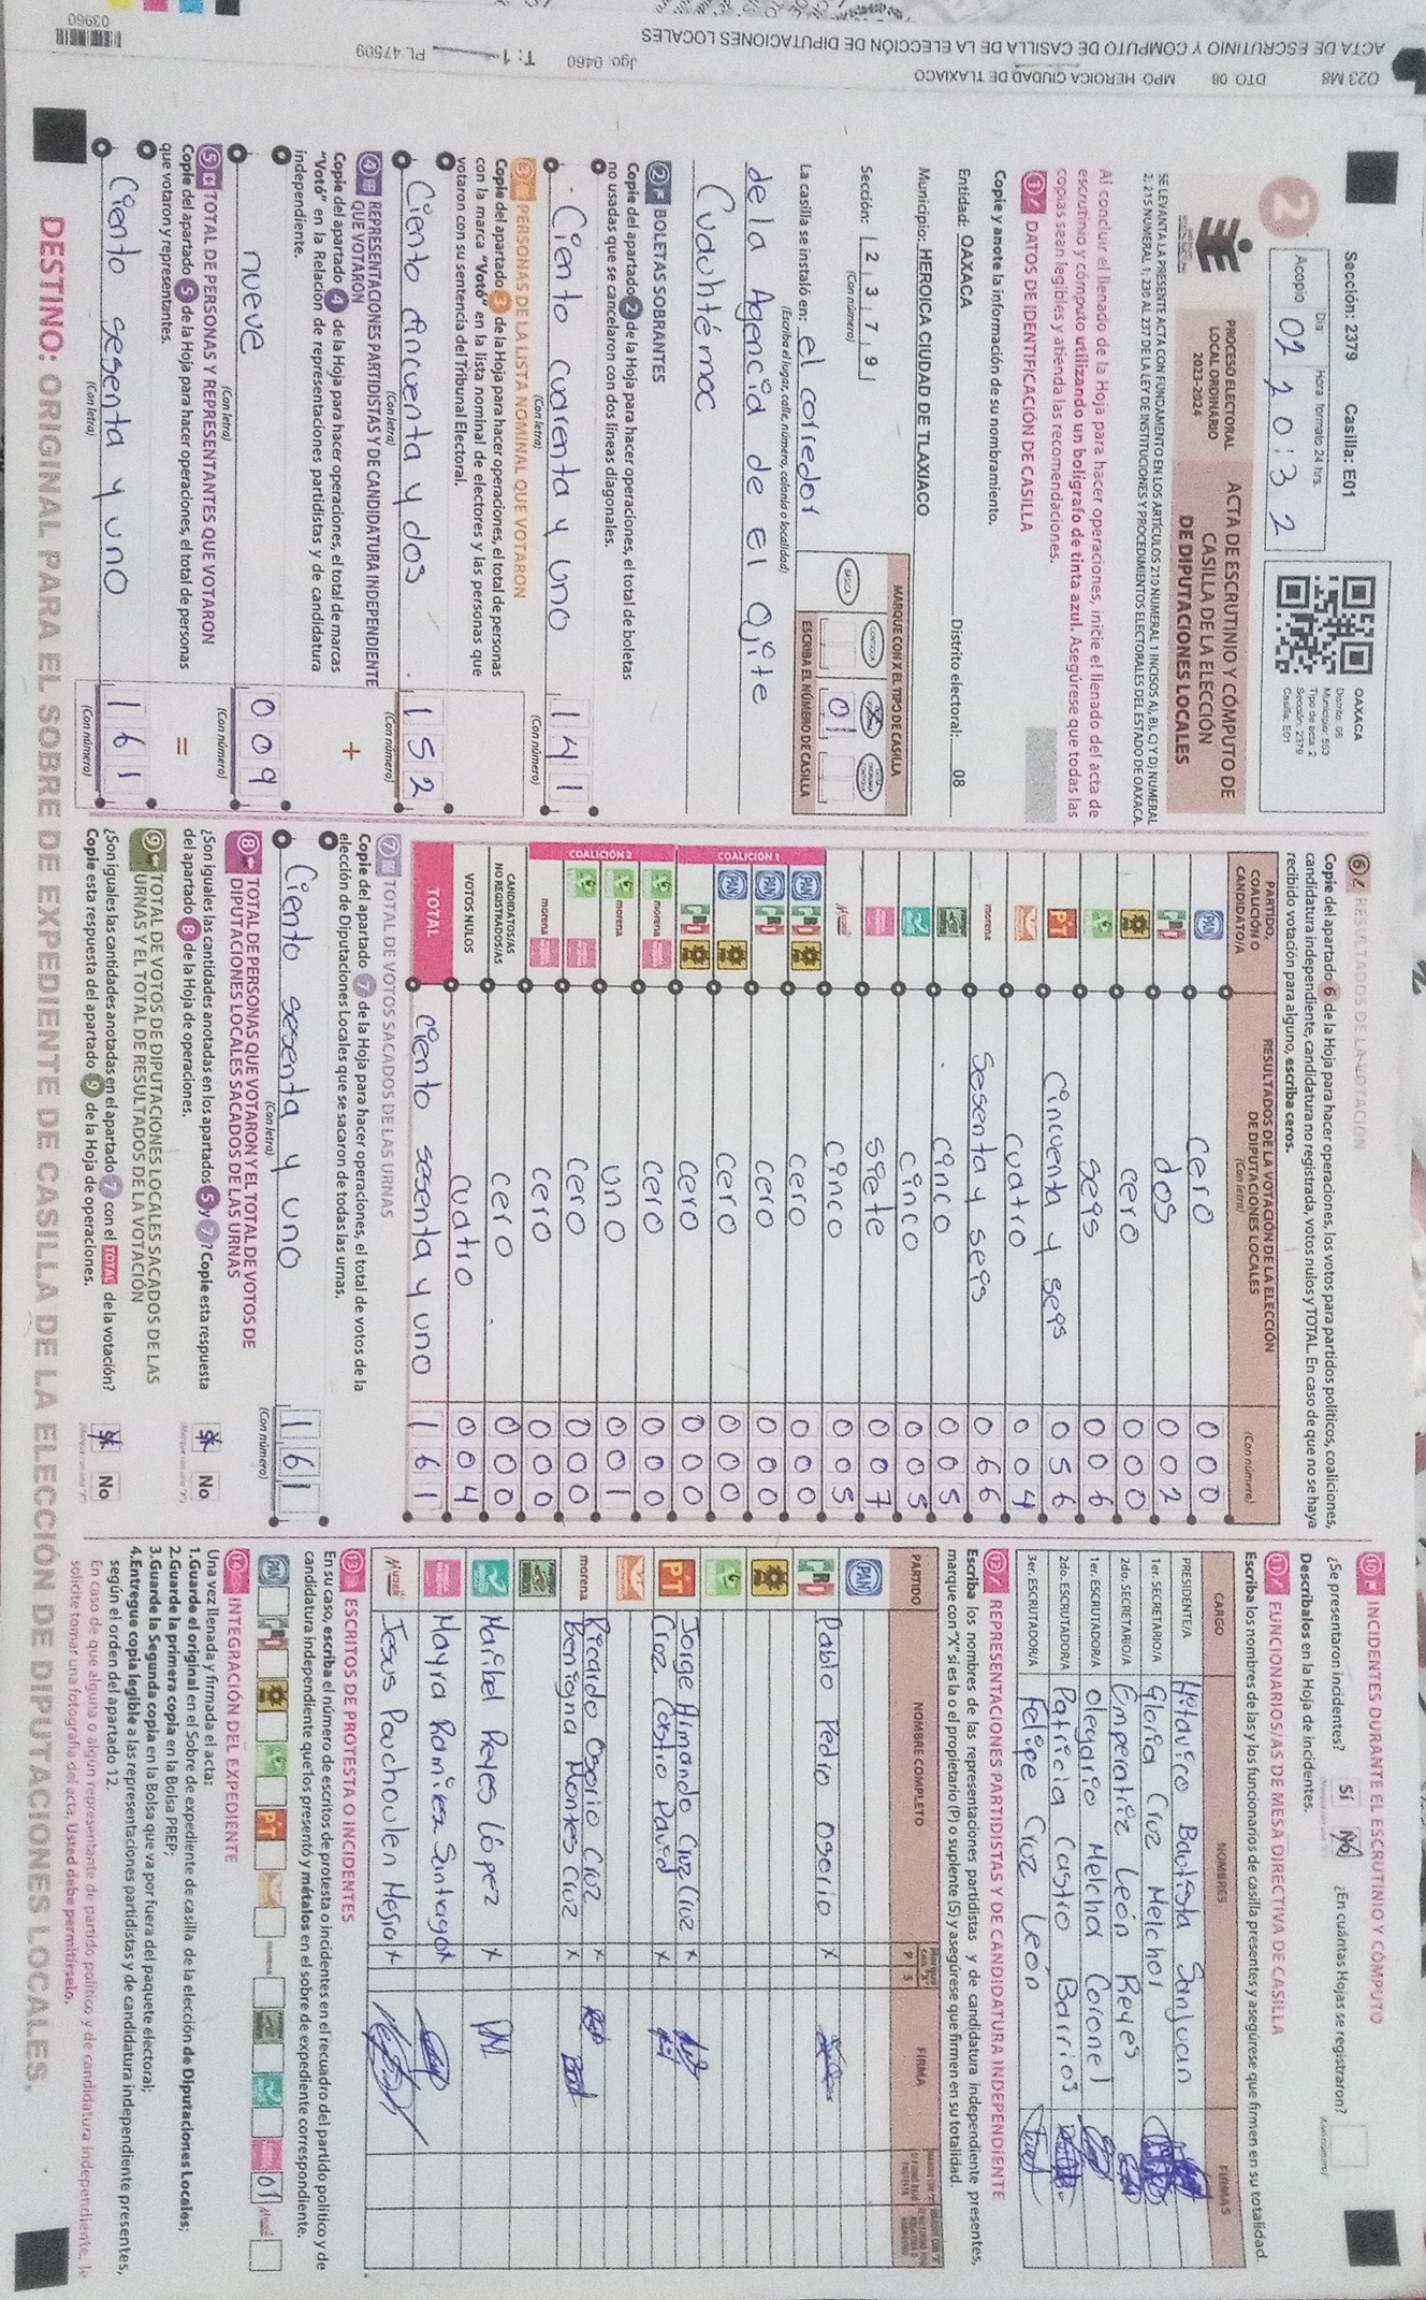 Sección: 2379 Casilla: E01
Día Hora formato 24 hrs.
Acopio 02 20:32
OAXACA
Distrito: 08
Municipio: 553
Tipo de acta: 2
Sección: 2379
Casilla: E01
2
PROCESO ELECTORAL
LOCAL ORDINARIO
2023-2024
ACTA DE ESCRUTINIO Y CÓMPUTO DE
CASILLA DE LA ELECCIÓN
DE DIPUTACIONES LOCALES
SE LEVANTA LA PRESENTE ACTA CON FUNDAMENTO EN LOS ARTÍCULOS 210 NUMERAL 1 INCISOS A), B), C) Y D) NUMERAL
2; 215 NUMERAL 1; 230 AL 237 DE LA LEY DE INSTITUCIONES Y PROCEDIMIENTOS ELECTORALES DEL ESTADO DE OAXACA.
Al concluir el llenado de la Hoja para hacer operaciones, inicie el llenado del acta de
escrutinio y cómputo utilizando un bolígrafo de tinta azul. Asegúrese que todas las
copias sean legibles y atienda las recomendaciones.
1 DATOS DE IDENTIFICACIÓN DE CASILLA
Copie y anote la información de su nombramiento.
Entidad: OAXACA Distrito electoral: 08
Municipio: HEROICA CIUDAD DE TLAXIACO
Sección: 2 3 7 9
(Con número)
MARQUE CON X EL TIPO DE CASILLA
BÁSICA
ESCRIBA EL NÚMERO DE CASILLA
01
La casilla se instaló en: el corredor
(Escriba el lugar, calle, número, colonia o localidad)
de la Agencia de El Ojite
Cuauhtémoc
2 BOLETAS SOBRANTES
Copie del apartado 2 de la Hoja para hacer operaciones, el total de boletas
no usadas que se cancelaron con dos líneas diagonales.
Ciento cuarenta y uno 141
(Con letra) (Con número)
3 PERSONAS DE LA LISTA NOMINAL QUE VOTARON
Copie del apartado 3 de la Hoja para hacer operaciones, el total de personas
con la marca "Votó" en la lista nominal de electores y las personas que
votaron con su sentencia del Tribunal Electoral.
Ciento cincuenta y dos 152
(Con letra) (Con número)
4 REPRESENTACIONES PARTIDISTAS Y DE CANDIDATURA INDEPENDIENTE
QUE VOTARON
Copie del apartado 4 de la Hoja para hacer operaciones, el total de marcas
"Votó" en la Relación de representaciones partidistas y de candidatura
independiente.
+
nueve 009
(Con letra) (Con número)
5 TOTAL DE PERSONAS Y REPRESENTANTES QUE VOTARON
Copie del apartado 5 de la Hoja para hacer operaciones, el total de personas
que votaron y representantes.
=
Ciento sesenta y uno 161
(Con letra) (Con número)
6 RESULTADOS DE LA VOTACIÓN
Copie del apartado 6 de la Hoja para hacer operaciones, los votos para partidos políticos, coaliciones,
candidatura independiente, candidatura no registrada, votos nulos y TOTAL. En caso de que no se haya
recibido votación para alguno, escriba ceros.
PARTIDO,
COALICIÓN O
CANDIDATO/A
RESULTADOS DE LA VOTACIÓN DE LA ELECCIÓN
DE DIPUTACIONES LOCALES
(Con letra) (Con número)
PAN cero 000
PRI dos 002
cero 000
seis 006
PT cincuenta y seis 056
cuatro 004
morena sesenta y seis 066
cinco 005
cinco 005
siete 007
cinco 005
COALICIÓN 1
PAN PRI cero 000
PAN PRI cero 000
PAN cero 000
PRI cero 000
COALICIÓN 2
morena cero 000
morena uno 001
cero 000
morena cero 000
CANDIDATOS/AS
NO REGISTRADOS/AS cero 000
VOTOS NULOS cuatro 004
TOTAL ciento sesenta y uno 161
7 TOTAL DE VOTOS SACADOS DE LAS URNAS
Copie del apartado 7 de la Hoja para hacer operaciones, el total de votos de la
elección de Diputaciones Locales que se sacaron de todas las urnas.
Ciento sesenta y uno 161
(Con letra) (Con número)
8 TOTAL DE PERSONAS QUE VOTARON Y EL TOTAL DE VOTOS DE
DIPUTACIONES LOCALES SACADOS DE LAS URNAS
¿Son iguales las cantidades anotadas en los apartados 5 y 7? Copie esta respuesta
del apartado 8 de la Hoja de operaciones.
Sí No
9 TOTAL DE VOTOS DE DIPUTACIONES LOCALES SACADOS DE LAS
URNAS Y EL TOTAL DE RESULTADOS DE LA VOTACIÓN
¿Son iguales las cantidades anotadas en el apartado 7 con el TOTAL de la votación?
Copie esta respuesta del apartado 9 de la Hoja de operaciones.
Sí No
10 INCIDENTES DURANTE EL ESCRUTINIO Y CÓMPUTO
¿Se presentaron incidentes? Sí No ¿En cuántas Hojas se registraron?
Descríbalos en la Hoja de incidentes.
11 FUNCIONARIOS/AS DE MESA DIRECTIVA DE CASILLA
Escriba los nombres de las y los funcionarios de casilla presentes y asegúrese que firmen en su totalidad.
CARGO NOMBRES FIRMAS
PRESIDENTE/A Hitavico Bautista Sanjuan
1er. SECRETARIO/A Gloria Cruz Melchor
2do. SECRETARIO/A Emperatriz León Reyes
1er. ESCRUTADOR/A Olegario Melchor Coronel
2do. ESCRUTADOR/A Patricia Castro Barrios
3er. ESCRUTADOR/A Felipe Cruz León
12 REPRESENTACIONES PARTIDISTAS Y DE CANDIDATURA INDEPENDIENTE
Escriba los nombres de las representaciones partidistas y de candidatura independiente presentes,
marque con "X" si es la o el propietario (P) o suplente (S) y asegúrese que firmen en su totalidad.
PARTIDO NOMBRE COMPLETO P S FIRMA
PAN
PRI Pablo Pedro Osorio X
PT Jorge Armando Cruz Cruz X
Cruz Castro David X
morena Ricardo Osorio Cruz X
Benigna Montes Cruz X
Maribel Reyes López X
Mayra Ramirez Santiago X
Jesus Pachoulen Mejia X
13 ESCRITOS DE PROTESTA O INCIDENTES
En su caso, escriba el número de escritos de protesta o incidentes en el recuadro del partido político y de
candidatura independiente que los presentó y métalos en el sobre de expediente correspondiente.
PAN PRI PT morena 01
14 INTEGRACIÓN DEL EXPEDIENTE
Una vez llenada y firmada el acta:
1.Guarde el original en el Sobre de expediente de casilla de la elección de Diputaciones Locales;
2.Guarde la primera copia en la Bolsa PREP;
3.Guarde la Segunda copia en la Bolsa que va por fuera del paquete electoral;
4.Entregue copia legible a las representaciones partidistas y de candidatura independiente presentes,
según el orden del apartado 12.
En caso de que alguna o algún representante de partido político y de candidatura independiente, le
solicite tomar una fotografía del acta, Usted debe permitírselo.
DESTINO: ORIGINAL PARA EL SOBRE DE EXPEDIENTE DE CASILLA DE LA ELECCIÓN DE DIPUTACIONES LOCALES.
O23 M8 DTO 08 MPO: HEROICA CIUDAD DE TLAXIACO
ACTA DE ESCRUTINIO Y CÓMPUTO DE CASILLA DE LA ELECCIÓN DE DIPUTACIONES LOCALES
Jgo. 0460 T: 1 PL 47509
03960